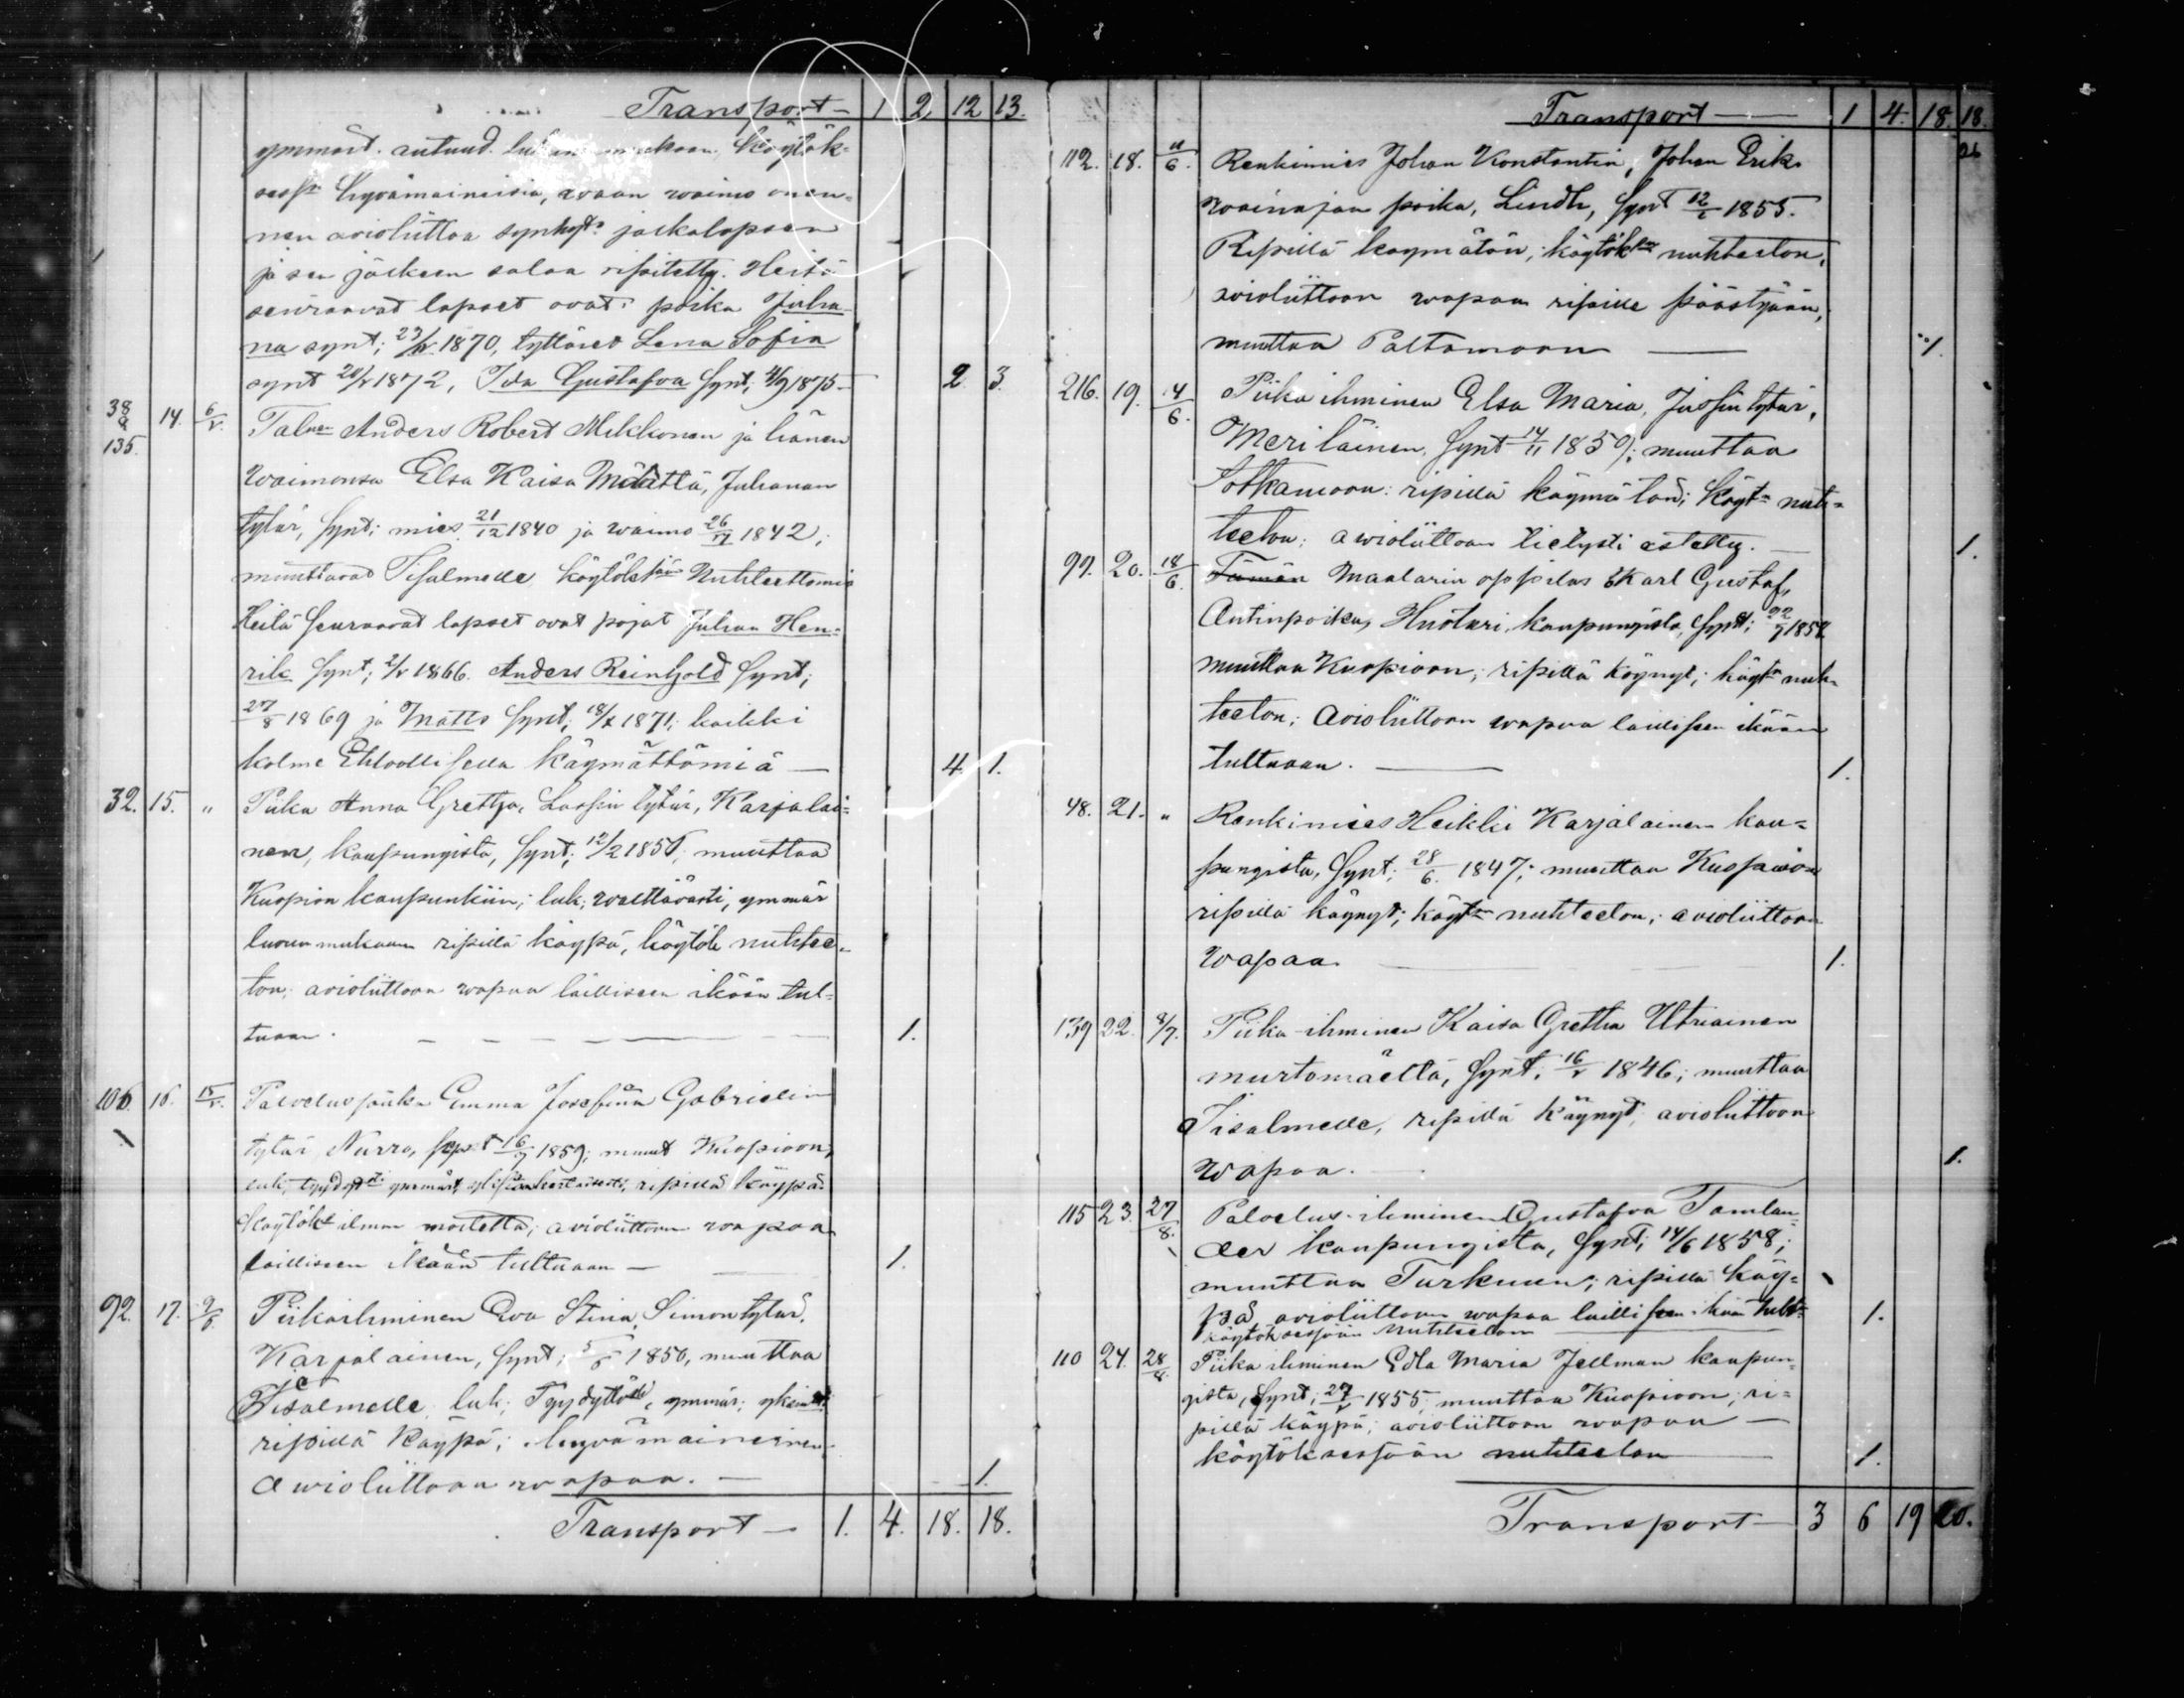 Transport — 1 2 12 13.
ymmärt. autuud. mukaan, käytök-
hyvämaineisia, waan waimo onen-
nen avioliittoa jalkalapsen
ja sen jälkeen salaa ripitetty. Heitä
seuraavat lapset ovat: poika Juha-
na synt; 1870, tyttäret Lena Sofia
synt 20/V 1872, Ida Gustafva synt; 4/9 1875 — 2. 3.
38 & 135. 14. 6/V. Tal Anders Robert Mikkonen ja hänen
waimonsa Elsa Kaisa Määttä, Juhanan
tytär, synt; mies 21/12 1840 ja waimo 26/ 1842;
muuttavat Iisalmelle käytöksessään Nuhteettomia
Heitä seuraavat lapset ovat pojat Juhan Hen-
rik synt; 2/V 1866. Anders Reinhold synt;
27/8 1869 ja Matts synt; 18/ 1871; kaikki
kolme Ehtoollisella käymättömiä — 4. 1.
32. 15. „ Piika Anna Gretha, Lassin tytär, Karjalai-
nen, kaupungista, synt; 12/2 185 ; muuttaa
Kuopion kaupunkiin; luk; welttävästi, ymmär
luvun mukaan ripillä käypä, käytök nuhtee-
ton; avioliittoon wapaa lailliseen ikään tul-
tuaan. — 1.
106. 16. 15/V. Palveluspiika Emma Josefina Gabrielin
tytär, Nurro, synt 16/7 1859; muut Kuopioon,
luk; ymmärt, ripillä käypä
käytöks ilman moitetta; avioliittoon wapaa
lailliseen ikään tultuaan — 1.
92. 17. 9/6. Piikaihminen Eva Stina, Simon tytär,
Karjalainen, synt; 5/ 1850, muuttaa
Iisalmelle luk; Tyydyttäv, ymmär;
ripillä käypä; hyvämaineinen
Awioliittoon wapaa. — 1.
Transport — 1. 4. 18. 18.
Transport — 1 4. 18. 18.
26
112. 18. 11/6. Renkimies Johan Konstantin, Johan Erik
wainajan poika, Lindh, synt 12/ 1855.
Ripillä käymätön; käytöks nuhteeton,
avioliittoon wapaa ripille päästyään,
muuttaa Paltamoon — 1.
216. 19. 14/6. Piika ihminen Elsa Maria, Jussin tytär,
Meriläinen, synt 14/11 1850; muuttaa
Sotkamoon: ripillä käymätön; käyt nuh-
teeton; awioliittoon tietysti estetty. — 1.
99. 20. 18/6. Maalarin oppilas Karl Gustaf,
Antinpoika, Huoturi, kaupungista, synt; 22/9 1858
muuttaa Kuopioon; ripillä käynyt; käyt nuh-
teeton; Avioliittoon wapaa lailliseen ikään
tultuaan. — 1.
48. 21. „ Renkimies Heikki Karjalainen kau-
pungista, synt; 28/6. 1847; muuttaa Kuopioon
ripillä käynyt; käyt nuhteeton; avioliittoon
wapaa. — 1.
139 22. 8/7. Piika-ihminen Kaisa Gretha Utriainen
murtomäeltä, synt. 16/V 1846; muuttaa
Iisalmelle, ripillä käynyt, avioliittoon
wapaa. — 1.
115 23. 27/8. Palvelus-ihminen Gustafva Tamlan-
der kaupungista, synt; 14/6 1858;
muuttaa Turkuun; ripillä käy-
pä avioliittoon wapaa lailliseen ikään tult- 1.
käytöksessään Nuhteeton
110 24. 28/8. Piika ihminen Edla Maria Jellman kaupun-
gista, synt; 27/V 1855; muuttaa Kuopioon; ri-
pillä käypä; avioliittoon wapaa —
käytöksessään nuhteeton — 1.
Transport — 3 6 19 20.